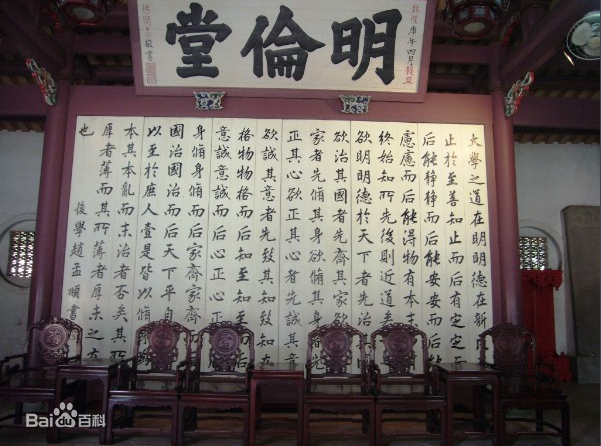 明倫堂
大學之道在明明德在新
止於至善知止而后有定定
后能靜靜而后能安安而后能
慮慮而后能得物有本末
終始知所先後則近道矣
欲明明德於天下者先治其
欲治其國者先齊其家欲
家者先脩其身欲脩其身者先
正其心欲正其心者先誠其意
欲誠其意者先致其知致知在
格物物格而后知至知至而后
意誠意誠而后心正心正而后
身脩身脩而后家齊家齊而
國治國治而后天下平自
以至於庶人壹是皆以脩身
本其本亂而末治者否矣其所
厚者薄而其所薄者厚未之有
也
後學趙孟頫書
Bai百科